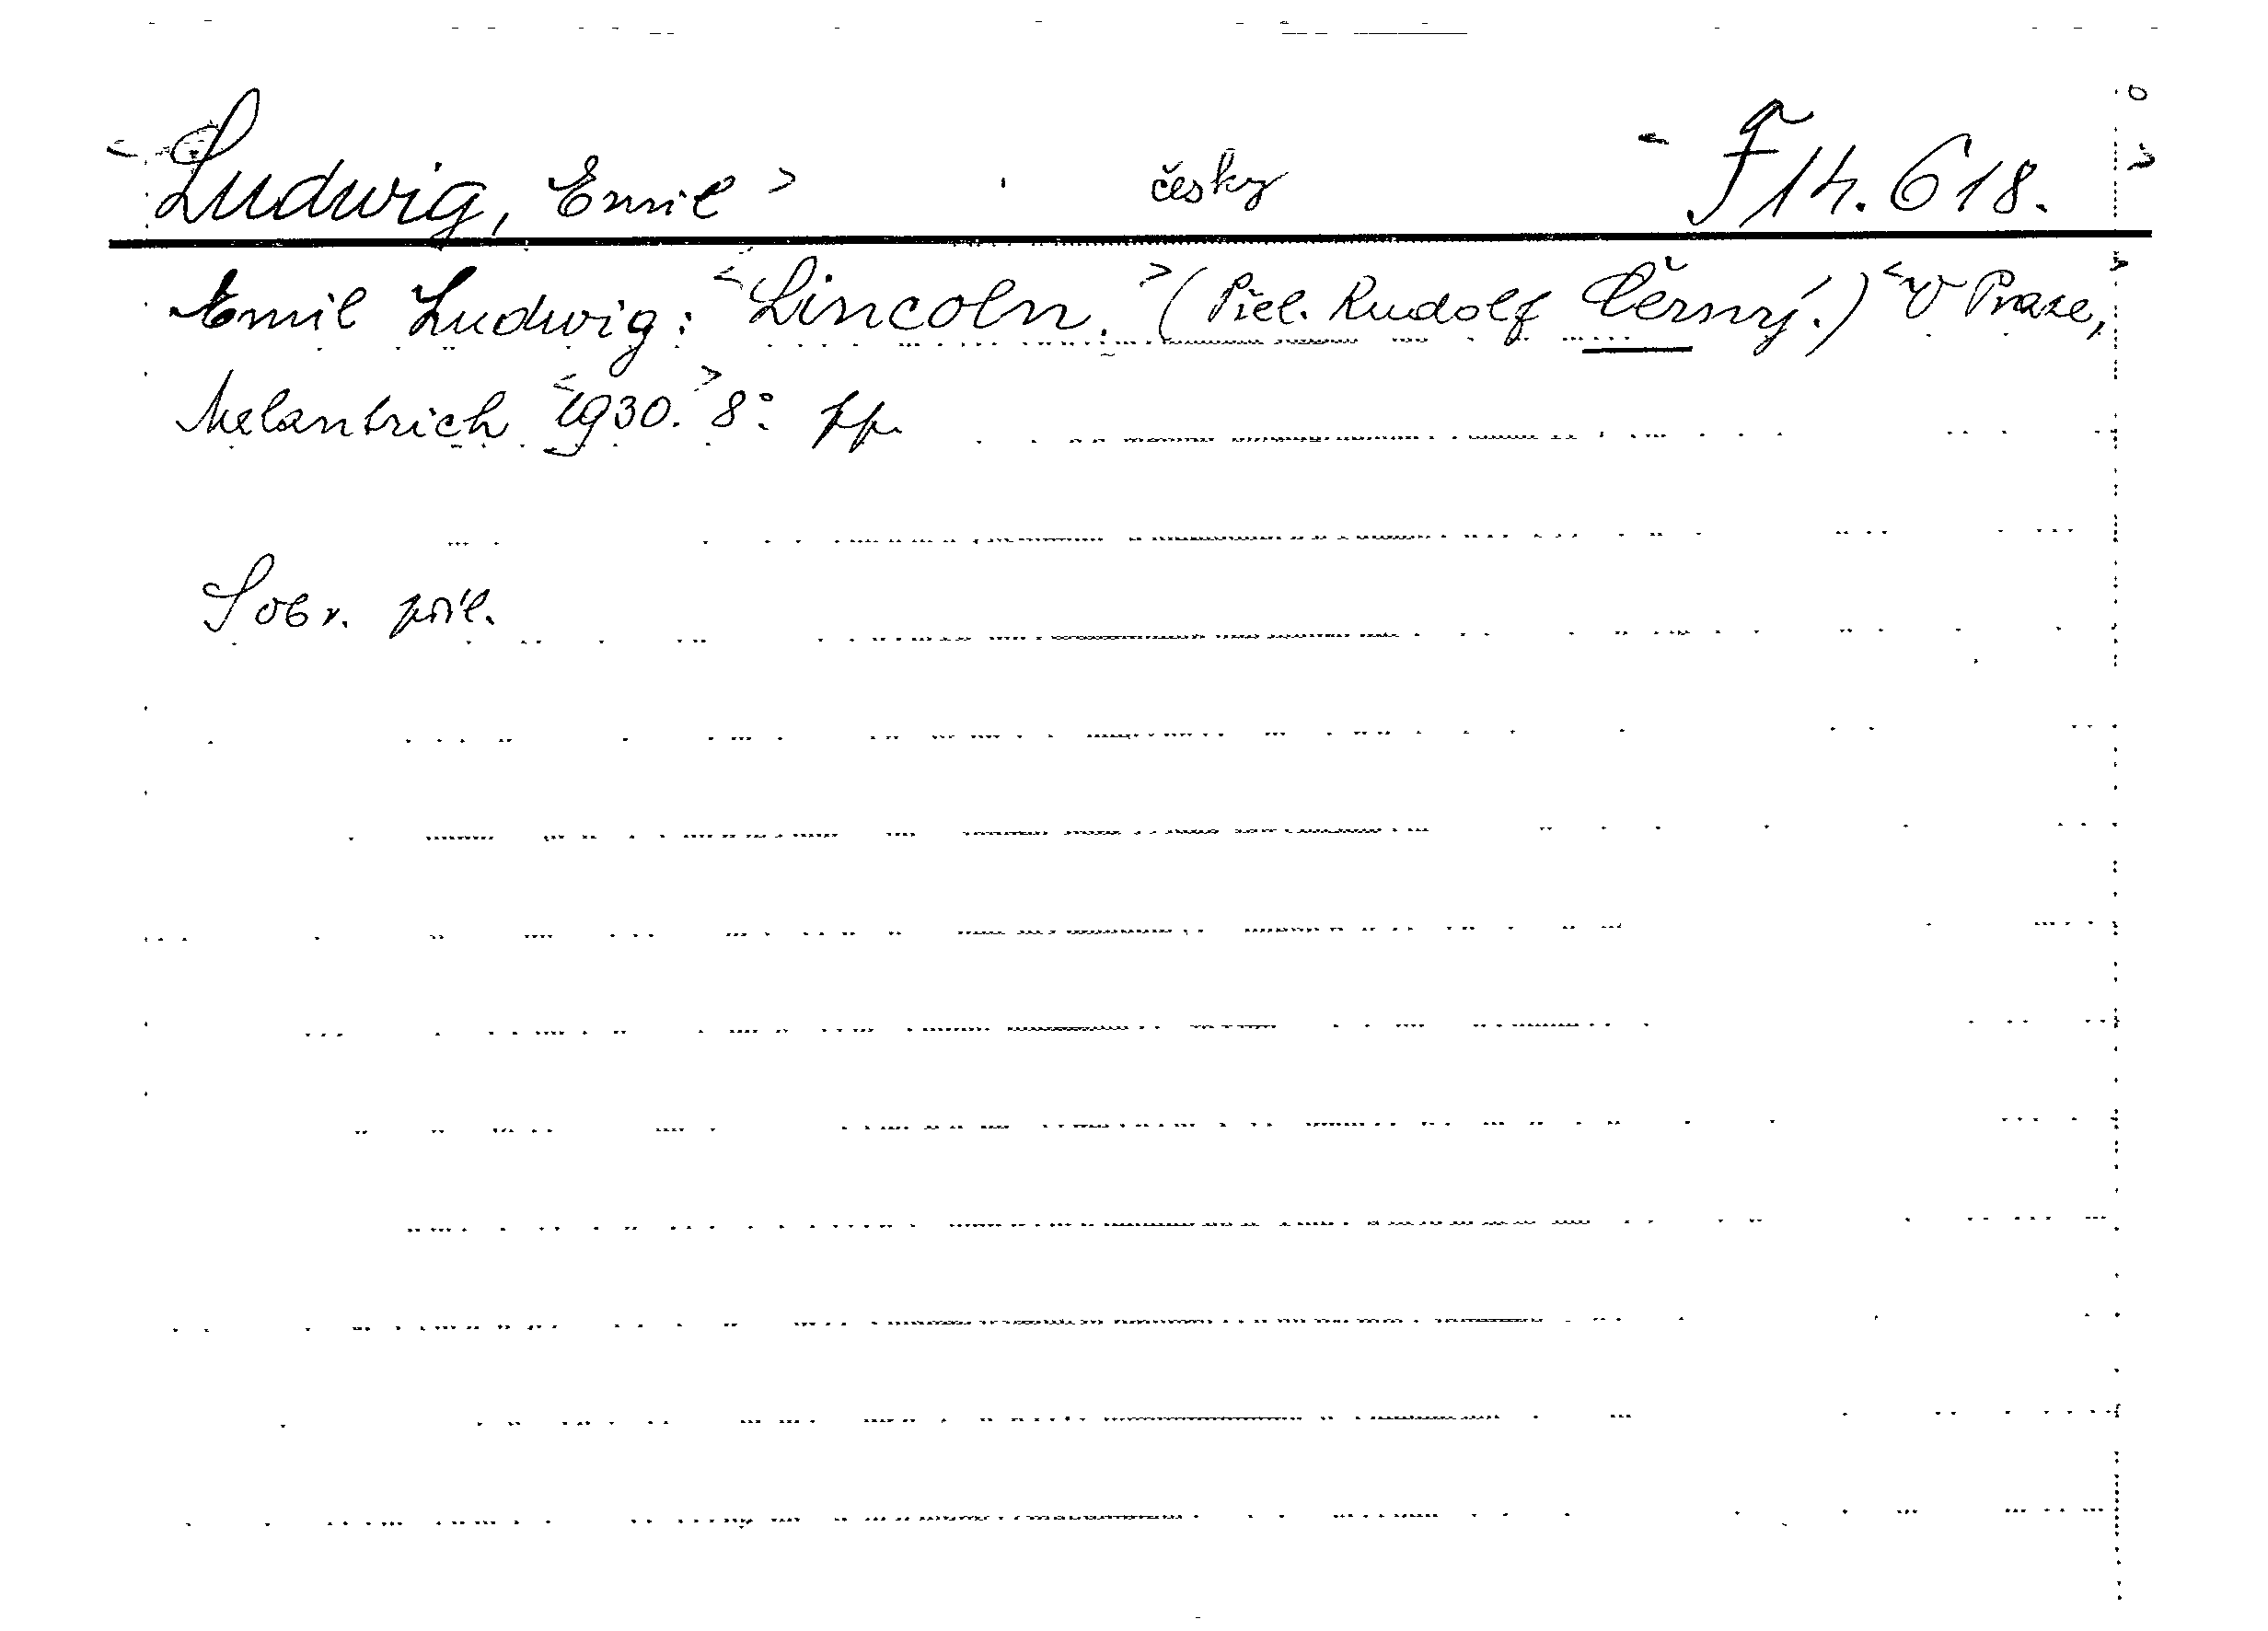 <Ludwig, Emil> česky <F 14.618.>
Emil Ludwig: <Lincoln.> (Přel. Rudolf Černý.) <V Praze,>
Melantrich <1930.> 8° pp.
S obr. příl.